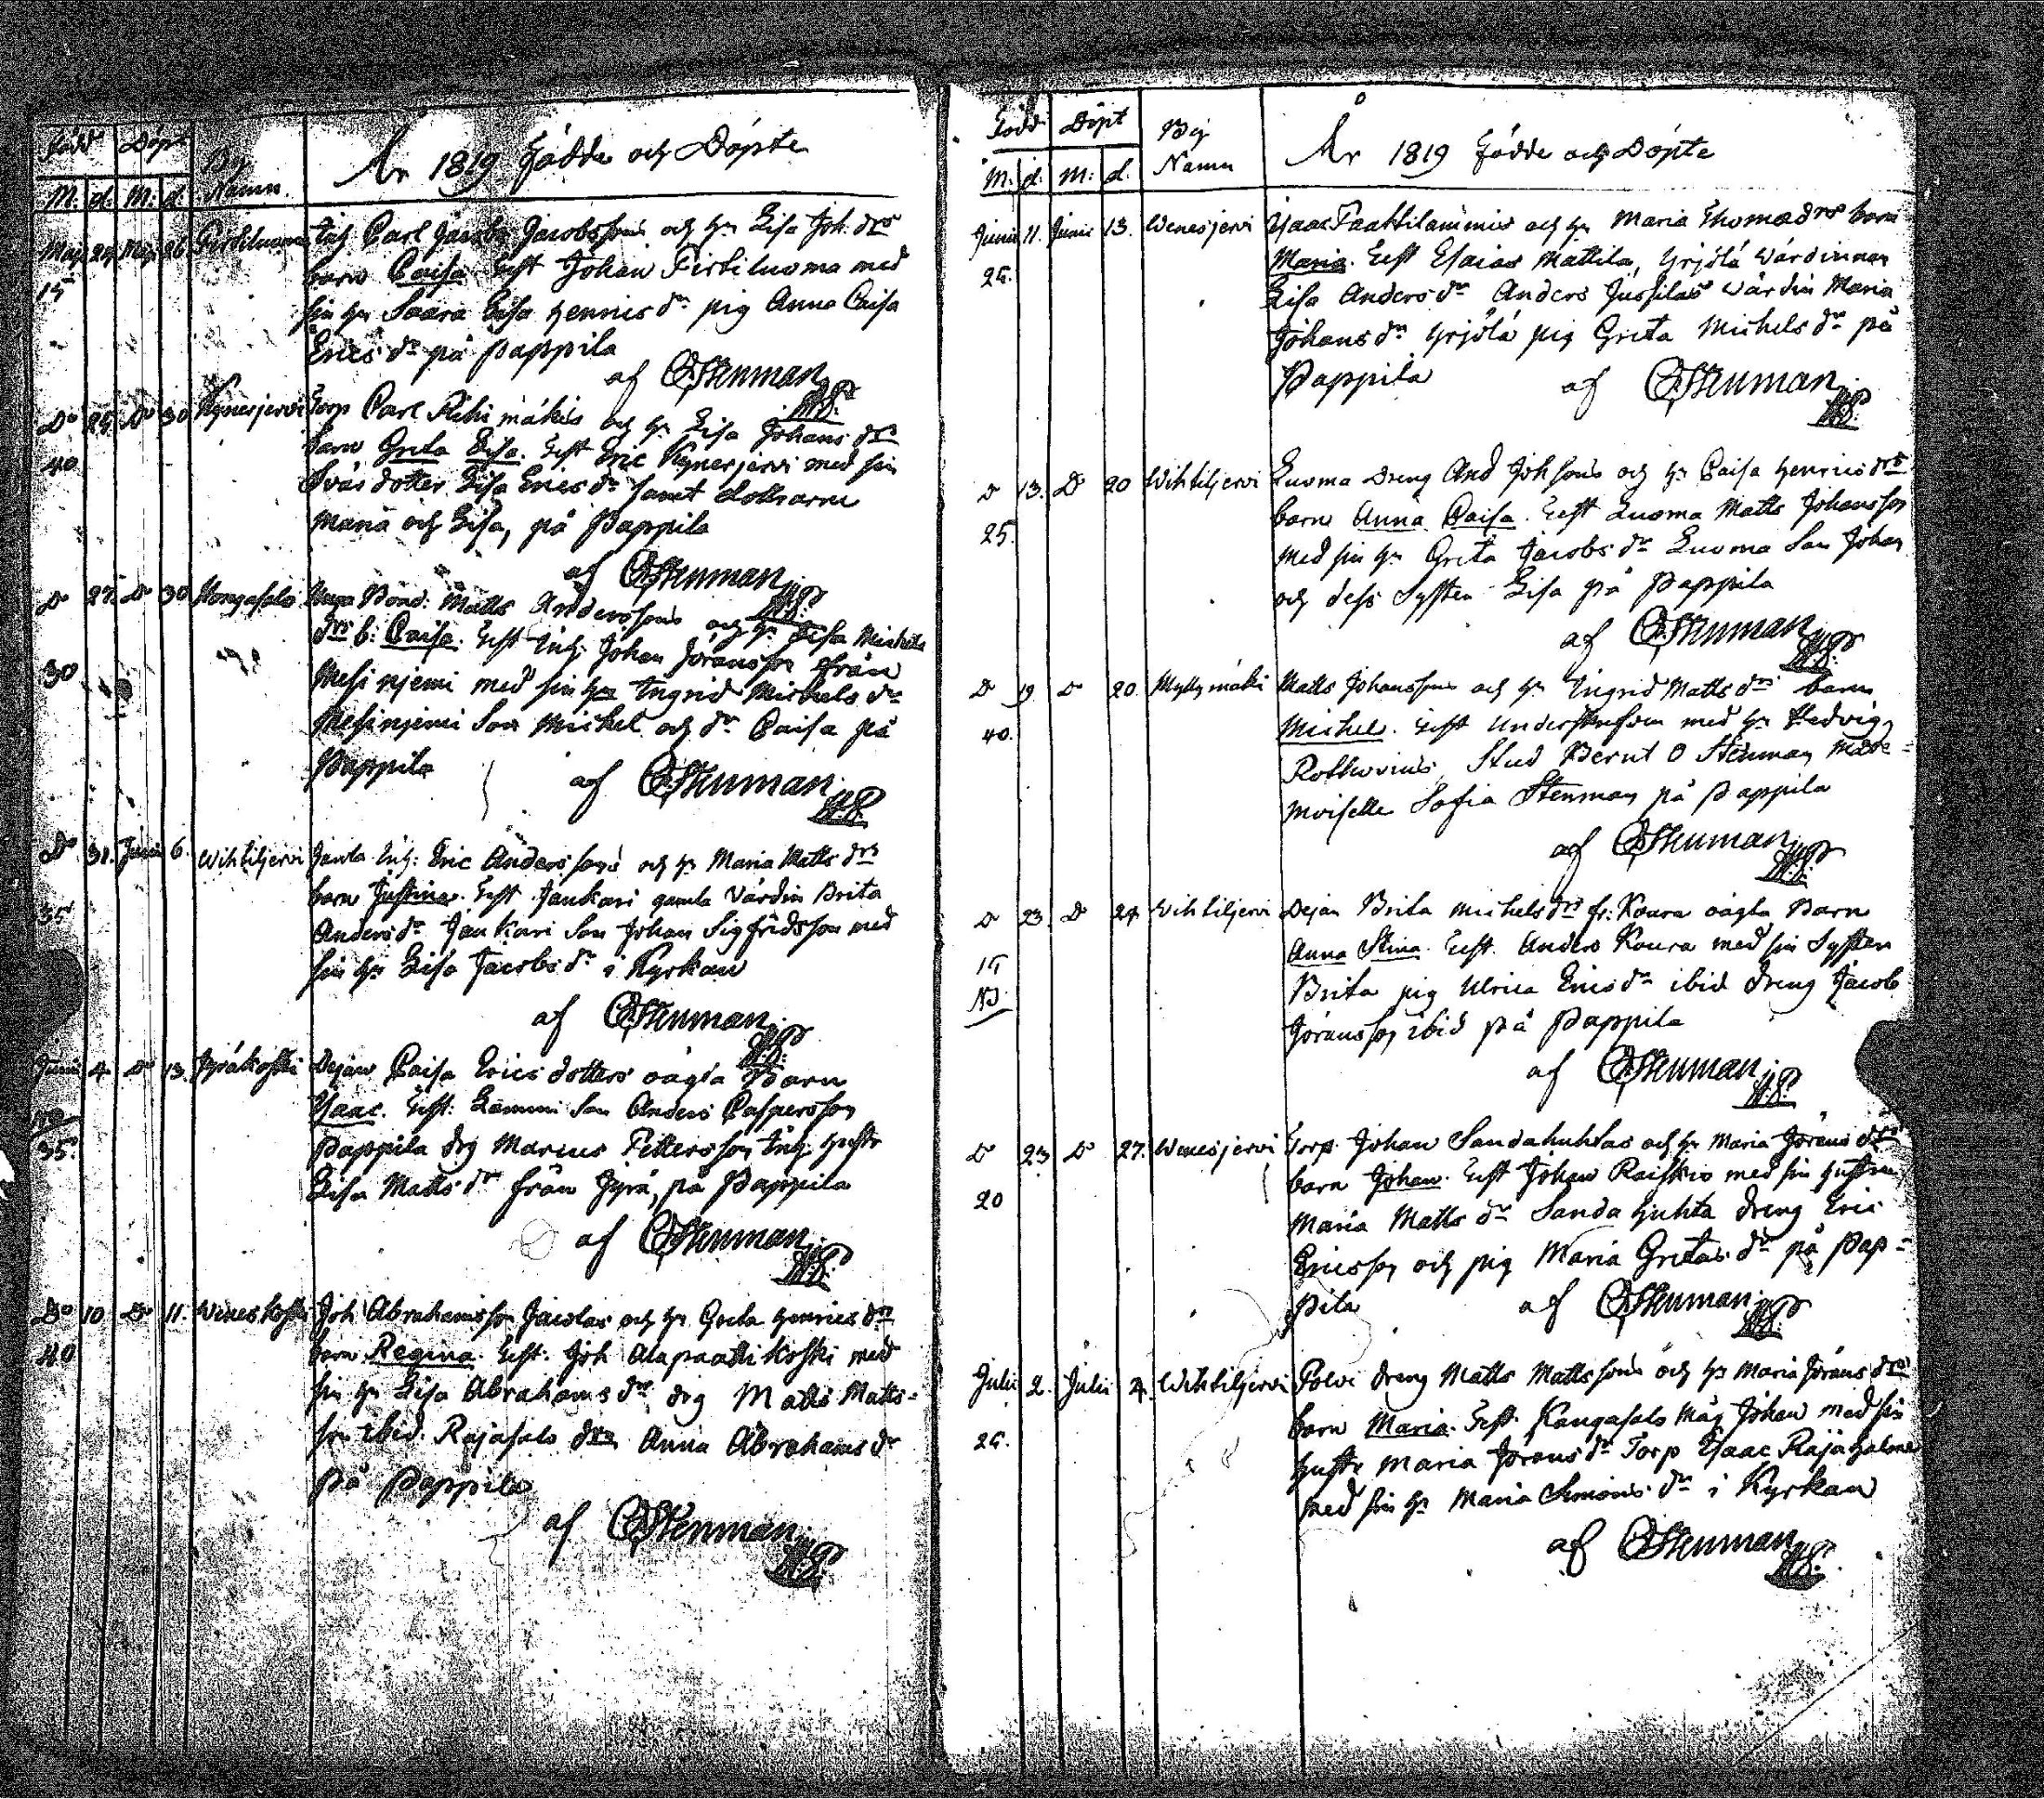 Född Döpt By Namn. År 1819 Födde och Döpte
M: d. M: d.
Maji 24. Maji 26. Firtiluoma Inh Carl Jacobs Jacobssons och h. Lisa Joh. drs
15 barn Caisa. Test Johan Firtiluoma med
sin h. Saara Lisa Henricsdr pig Anna Caisa
Ericsdr på Pappila
af CStenman
Do 25. Do 30 Kynesjervi Torp Carl Rihimäkis och h. Lisa Johans drs
40 barn Greta Lisa. Test Eric Kynesjervi med sin
Svärdotter Lisa Ericsdr samt dottrarne
Maria och Lisa, på Pappila
af CStenman
Do 27. Do 30 Kongasalo Unga Bond: Matts Anderssons och h. Lisa Michels
drs b: Caisa. Test Inh: Johan Jöransson från
30 Mesinjemi med sin h. Ingrid Michelsdr
Mesinjemi Son Michel och dr Caisa på
Pappila
af CStenman
Do 31. Junii 6. Wihtiljervi Jamla Inh: Eric Anderssons och h. Maria Matts drs
35 barn Justina. Test Jaukari gamla Värdin Brita
Andersdr Jaukari Son Johan Sigfridsson med
sin h. Lisa Jacobsdr i Kyrkan
af CStenman
Junii 4. Do 13. Jyräkoski Dejan Caisa Ericsdotters oägta Barn
Isaac. Test: Lammi Son Anders Caspersson
35. Pappila drg Marcus Pettersson Inh: hustr
Lisa Mattsdr från Jyrä, på Pappila
af CStenman
Do 10 Do 11. Weneskoski Joh Abrahamsson Jacolas och h. Greta Henrics drs
40 barn Regina. Test: Joh Alapaattikoski med
sin h. Lisa Abrahamsdr drg Matts Matts-
son ibid. Rajasalo drn Anna Abrahamsdr
på Pappila
af CStenman
Född Döpt By Namn År 1819 Födde och Döpte
M: d: M: d.
Junii 11. Junii 13. Wenesjervi Isaac Paattilammis och h. Maria Thomædrs barn
Maria. Test Esaias Mattila, Yrjölä Värdinnan
25. Lisa Andersdr Anders Jussilas Värdin Maria
Johansdr Yrjölä pig Greta Michelsdr på
Pappila af CStenman
Do 13. Do 20 Wihtiljervi Luoma Dreng And Johsons och h. Caisa Henricsdrs
barn Anna Caisa. Test Luoma Matts Johansson
25. med sin h. Greta Jacobsdr Luoma Son Johan
och dess Syster Lisa på Pappila
af CStenman
Do 19 Do 20. Myllymäki Matts Johanssons och h. Ingrid Mattsdrs barn
Michel. Test Underskrefven med h. Hedvig
40. Rothovius, Stud Bernt O Stenman Made-
moiselle Sofia Stenman på Pappila
af CStenman
Do 23. Do 24 Wihtiljervi Dejan Brita Michelsdrs fr: Koura oägta Barn
Anna Stina. Test. Anders Koura med sin Syster
Brita pig Ulrica Ericsdr ibid dreng Jacob
Jöransson ibid på Pappila
af CStenman
Do 23 Do 27. Wenesjervi Torp. Johan Sandahuhtas och h. Maria Jörans drs
barn Johan. Test Johan Raiskio med sin hustru
20 Maria Mattsdr Sandahuhta dreng Eric
Ericsson och pig Maria Gretasdr på Pap-
pila af CStenman
Julii 2. Julii 4. Wihtiljervi Polvi dreng Matts Mattssons och h. Maria Jörans drs
barn Maria. Test. Kangasalo Måg Johan med sin
25. hustr Maria Jöransdr Torp Isaac Rajahalme
med sin h. Maria Simonsdr i Kyrkan
af CStenman